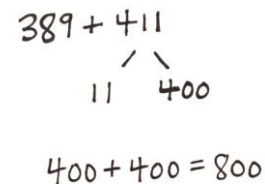 389 + 411
11 400
400 + 400 = 800